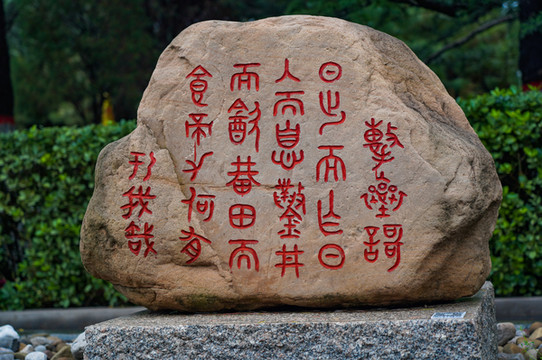 擊壤歌
日出而作日
入而息鑿井
而飲耕田而
食帝力何有
于我哉